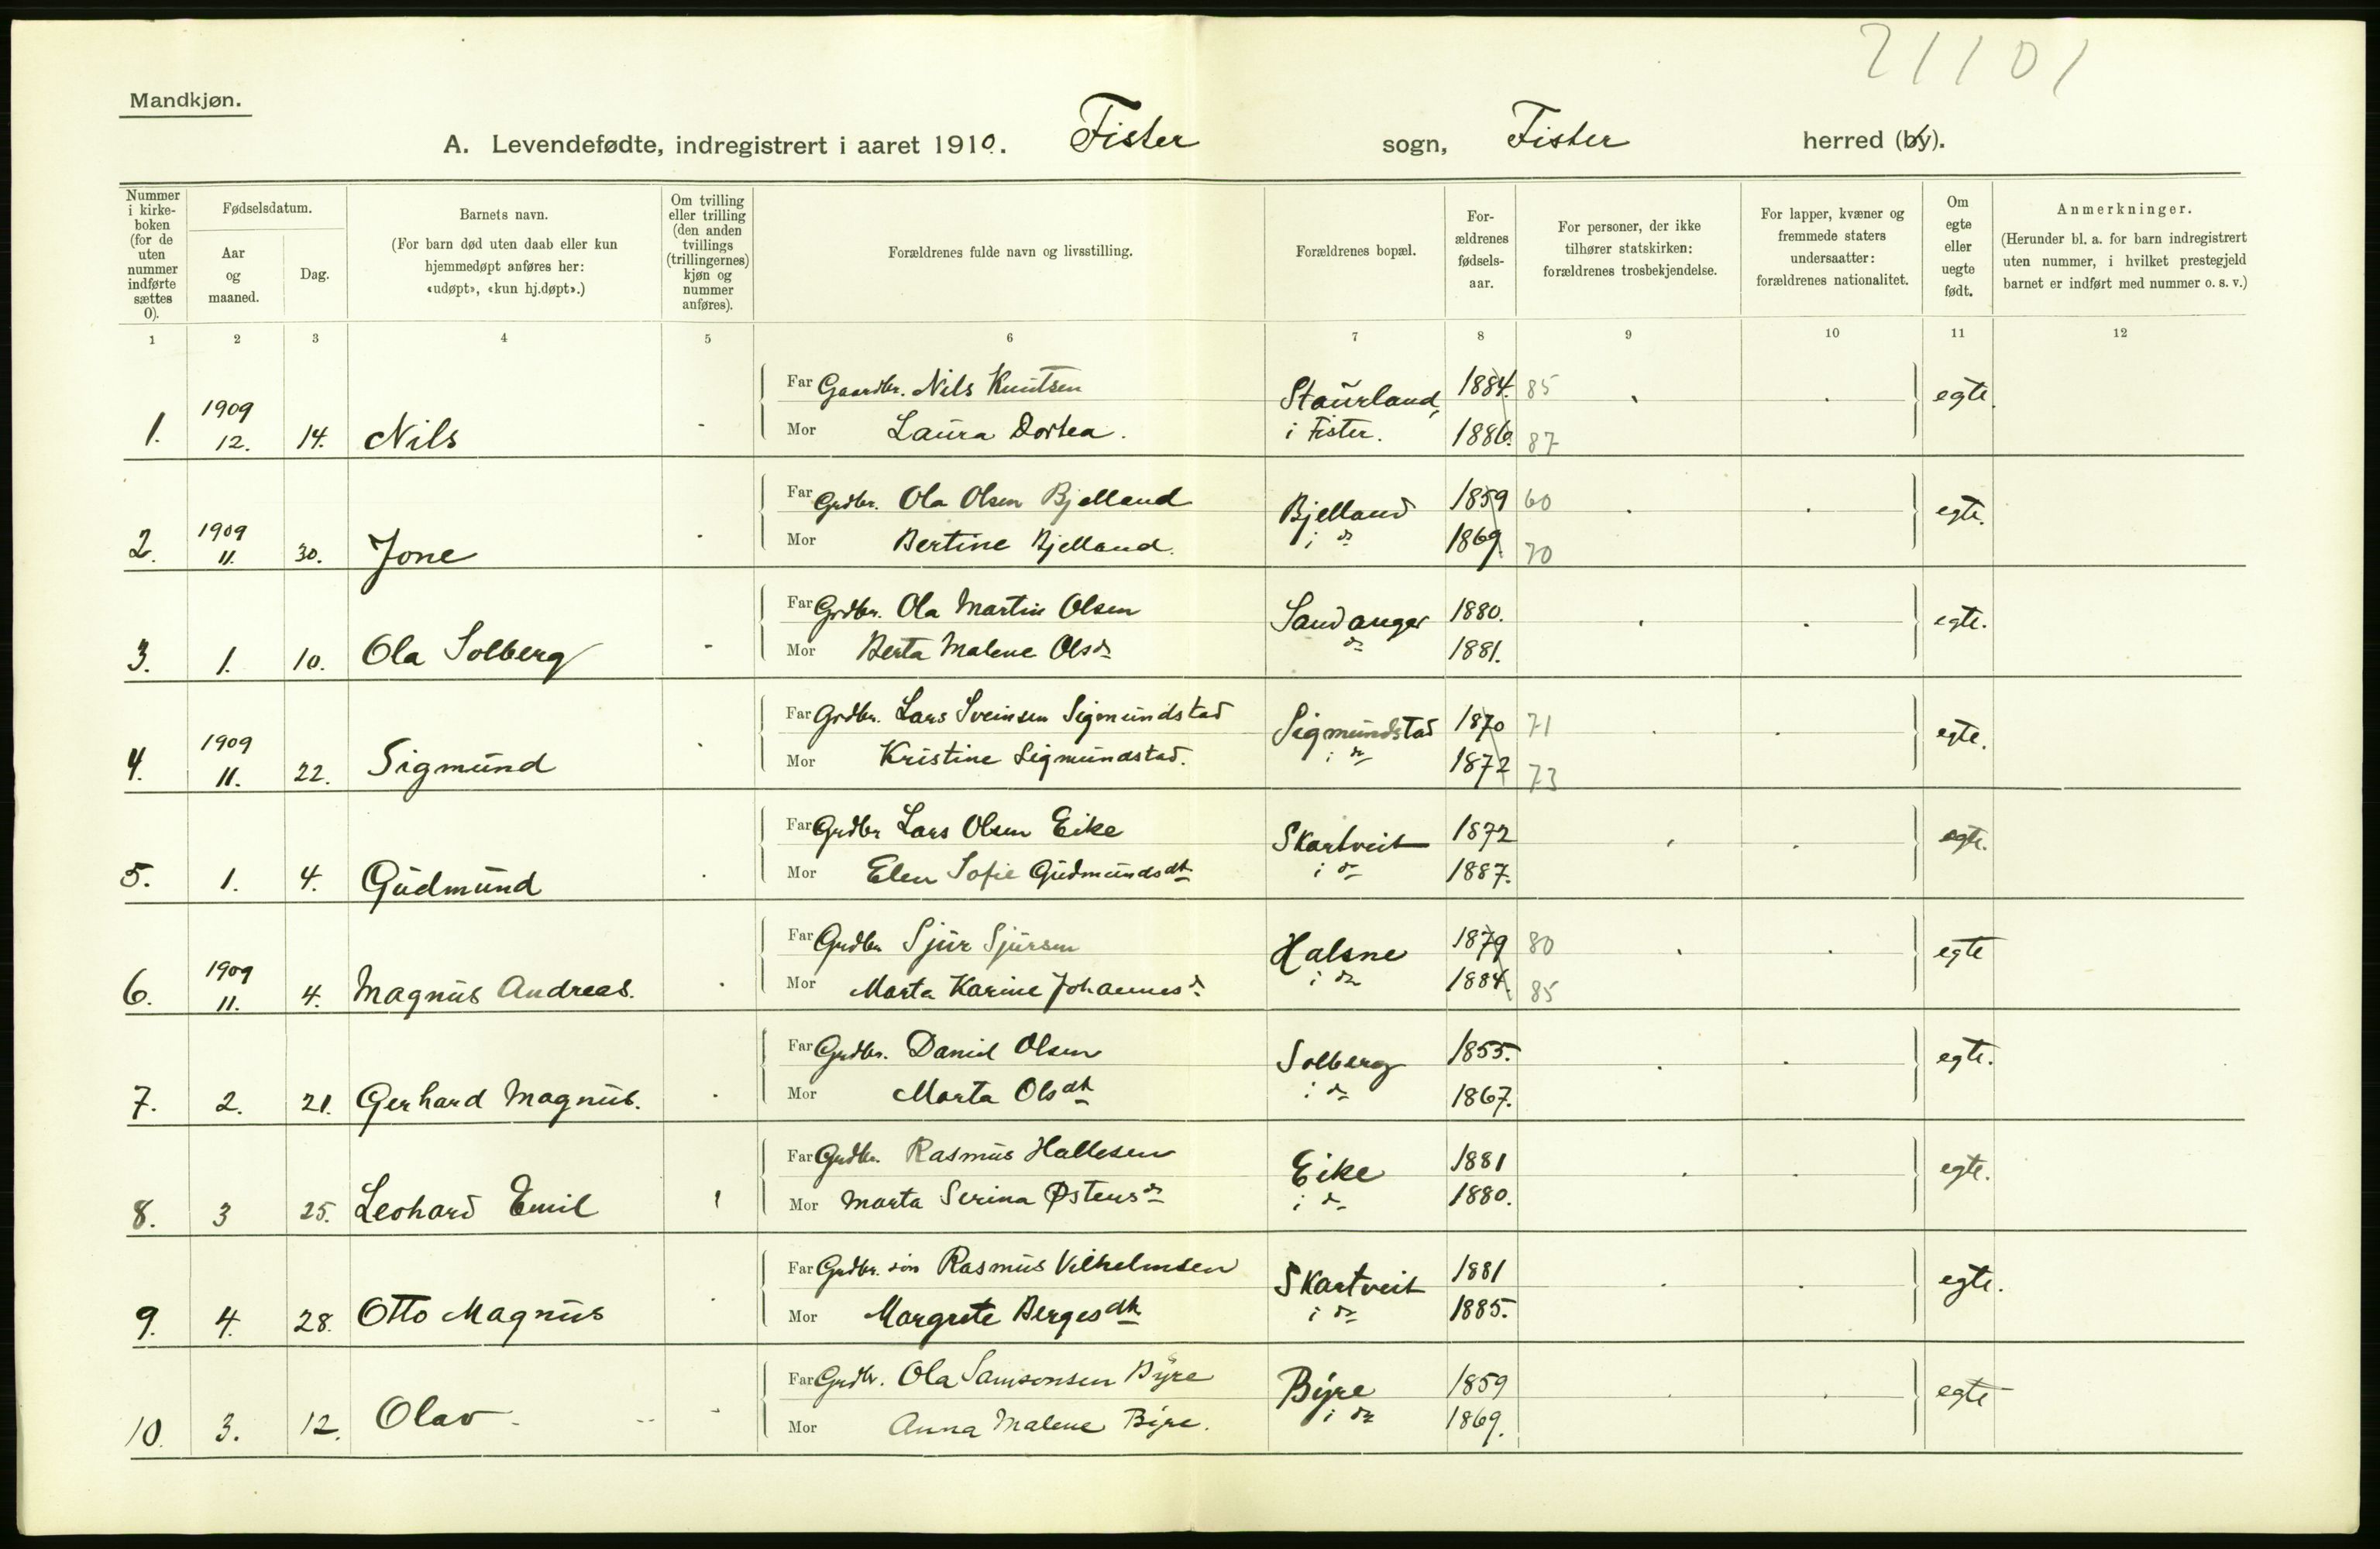 21101
Mandkjøn.
A. Levendefødte, indregistrert i aaret 1910. Fister sogn, Fister herred (by).
Nummer i kirke-boken (for de uten nummer indførte sættes 0).
Fødselsdatum.
Aar og maaned.
Dag.
Barnets navn.
(For barn død uten daab eller kun hjemmedøpt anføres her: «udøpt», «kun hj.døpt».)
Om tvilling eller trilling (den anden tvillings (trillingernes) kjøn og nummer anføres).
Forældrenes fulde navn og livsstilling.
Forældrenes bopæl.
For-ældrenes fødsels-aar.
For personer, der ikke tilhører statskirken: forældrenes trosbekjendelse.
For lapper, kvæner og fremmede staters undersaatter: forældrenes nationalitet.
Om egte eller uegte født.
Anmerkninger.
(Herunder bl. a. for barn indregistrert uten nummer, i hvilket prestegjeld barnet er indført med nummer o. s. v.)
1 2 3 4 5 6 7 8 9 10 11 12
Far Gaardbr. Nils Knutsen Staurland, 1884. 85 egte.
1. 1909 12. 14. Nils - Mor Laura Dortea. i Fister. 1886. 87
Far Grdbr. Ola Olsen Bjelland Bjelland 1859 60 egte.
2. 1909 11. 30. Jone - Mor Bertine Bjelland. i do 1869 70
Far Grdbr. Ola Martin Olsen Sandanger 1880. egte.
3. 1. 10. Ola Solberg - Mor Berta Malene Olsd. do 1881.
Far Grdbr. Lars Sveinsen Sigmundstad Sigmundstad 1870 71 egte.
4. 1909 11. 22. Sigmund Mor Kristine Sigmundstad. i do 1872 73
Far Grdbr Lars Olsen Eike Skartveit 1872 egte.
5. 1. 4. Gudmund Mor Elen Sofie Gudmundsdt i do 1887.
Far Grdbr Sjur Sjursen Halsne 1879 80 egte
6. 1909 11. 4. Magnus Andreas. Mor Marta Karine Johannesd. i do 1884. 85
Far Grdbr. Daniel Olsen Solberg 1855. egte.
7. 2. 21. Gerhard Magnus. Mor Marta Olsdt i do 1867.
Far Grdbr. Rasmus Hallesen Eike 1881 egte.
8. 3 25. Leohard Emil Mor Marta Serina Østensd i do 1880.
Far Grdbr. søn Rasmus Vilhelmsen Skartveit 1881 egte.
9. 4. 28. Otto Magnus Mor Margrete Bergesdt i do 1885.
Far Grdbr. Ola Samsonsen Byre Byre 1859 egte
10. 3. 12. Olav - Mor Anna Malene Byre. i do 1869.